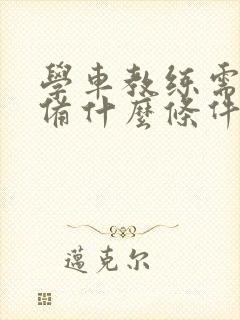 學車教練需
備什麼條件
邁克尔